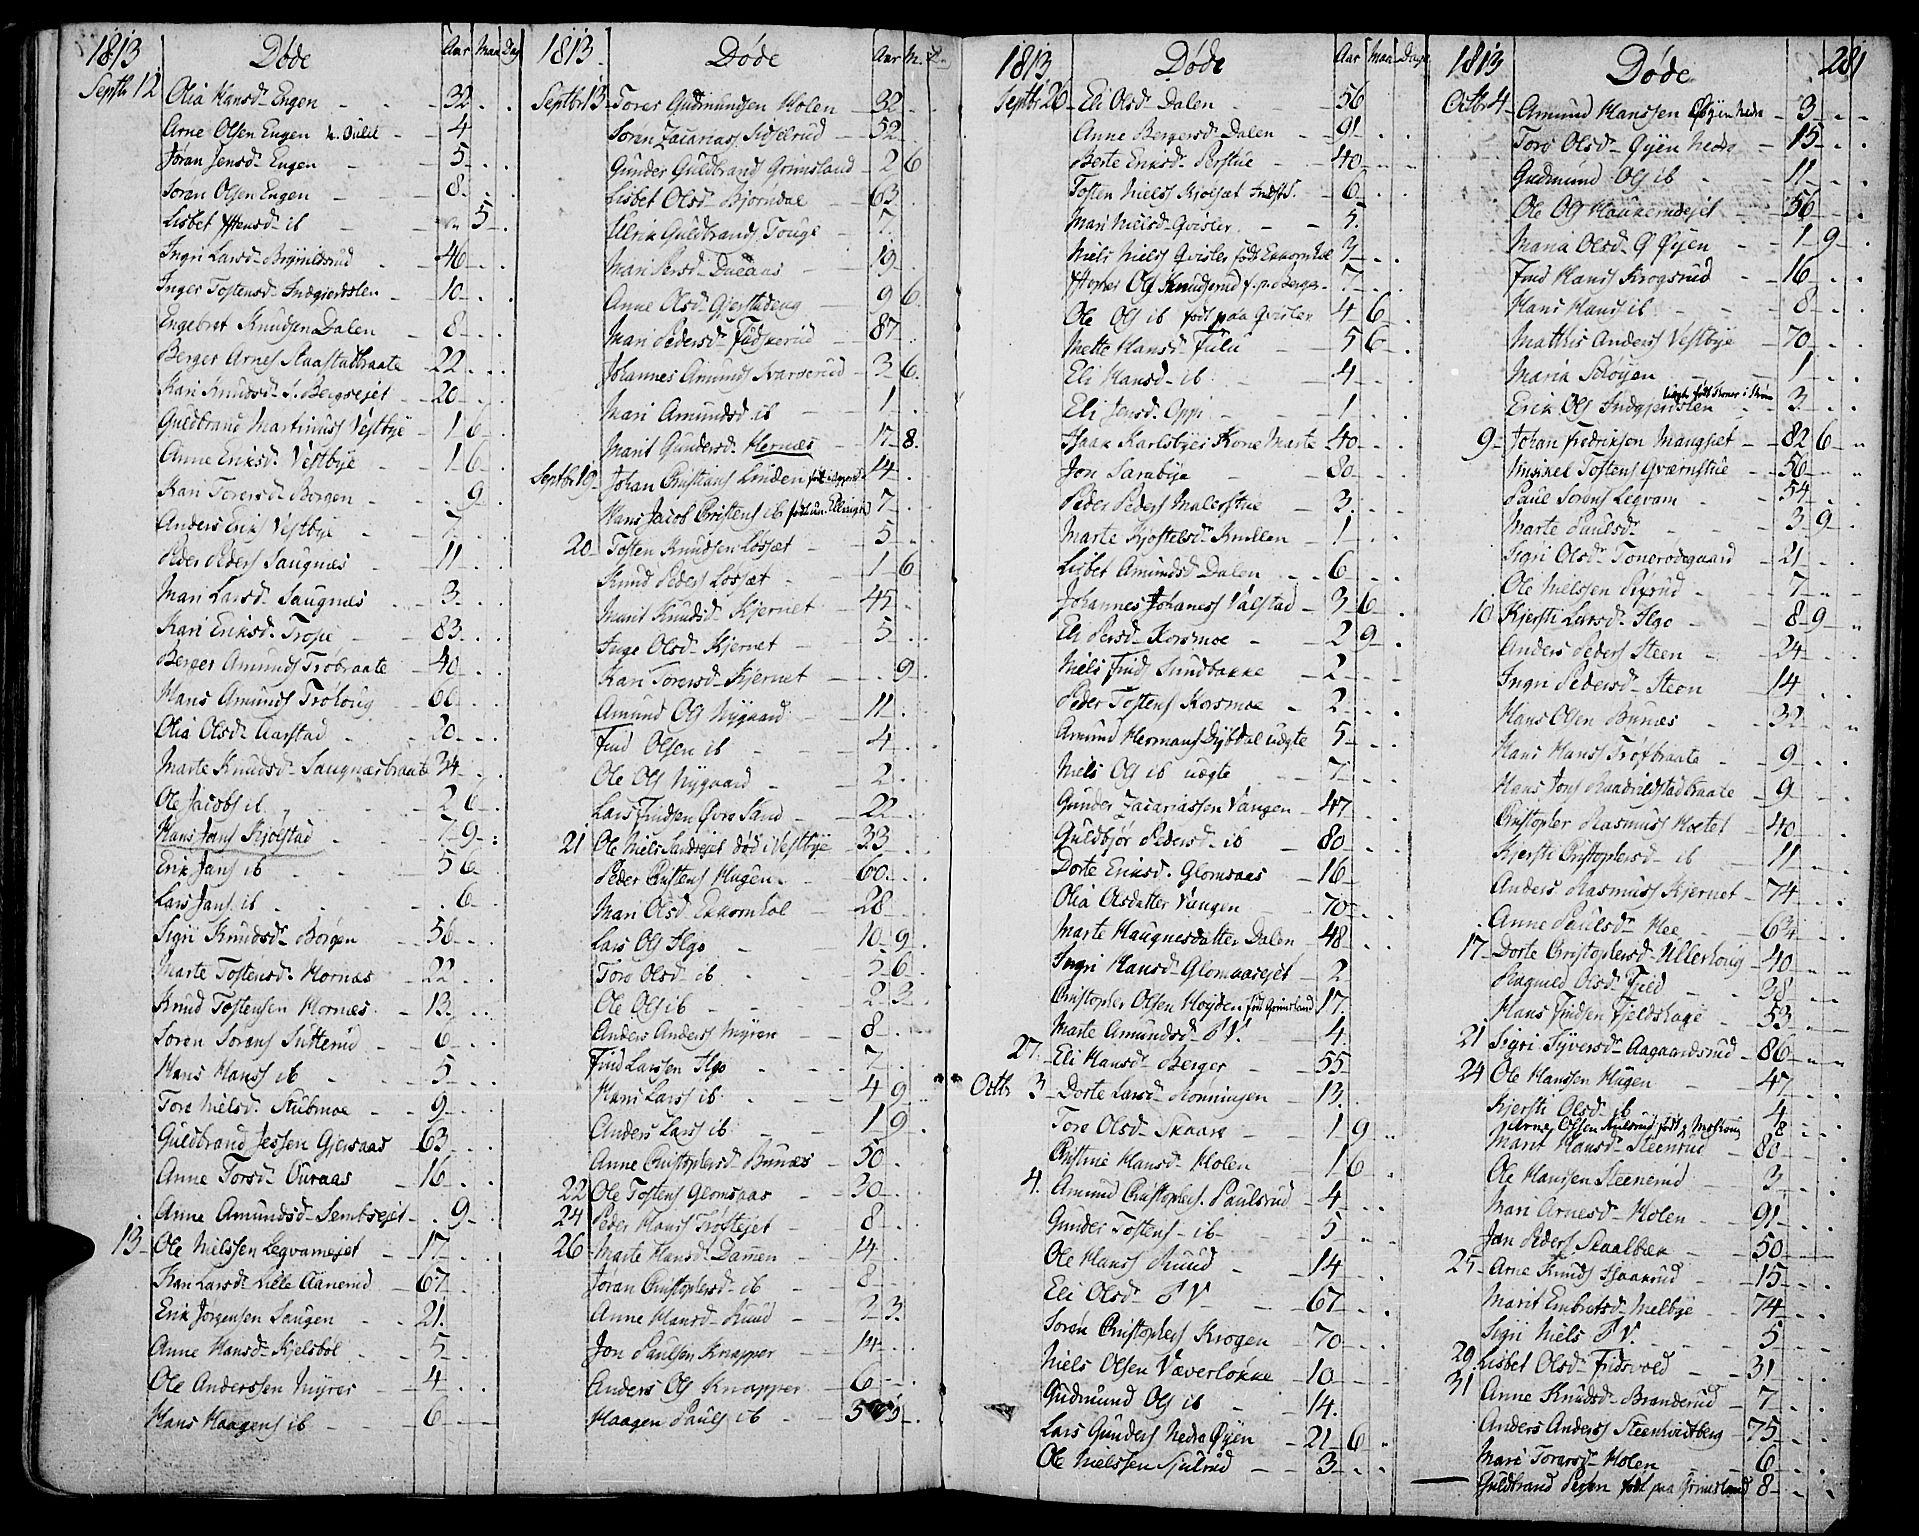 1813 Døde Aar Maa Dag
Septbr 12 Olia Hansd. Engen 32
Arne Olsen Engen 4
Jøran Jensd. Engen 5
Søren Olsen Engen 8
Lisbet d. ib 5
Ingri Larsd. Brynildsrud 46
Inger Tostensd. Indgierdslen 10
Engebret Knudsen Dalen 8
Berger Arnes Staastadbraate 22
Kari Knudsd. Bergsejet 20
Guldbrand Martinus Vestbye 1 6
Anne Eriksd. Vestbye 1 6
Kari Torersd. Borgen 9
Anders Eriks Vestbye 7
Peder Peders Saugnes 11
Mari Larsd. Saugnes 3
Kari Eriksd. Trope 83
Berger Amunds Trobraate 40
Hans Amunds Trohoug 66
Olia Olsd. Aarstad 20
Marte Knudsd. Saugnæsbraate 34
Ole Jacobs ib 2 6
Hans Jans Kjølstad 7 9
Erik Jans ib 5 6
Lars Jans ib 6
Sigri Knudsd. Borgen 56
Marte Tostensd. Hornæs 22
Knud Tostensen Hornæs 13
Søren Sørens Sutterud 6
Hans Hans ib 5
Tore Nielsd. Stubmoe 9
Guldbrand Jessen Gjersaas 63
Anne Torsd. Ouraas 16
Anne Amundsd. Sembsejet 9
13 Ole Nielssen Legvamejet 17
Kari Larsd. Lille Aanerud 67
Erik Jørgensen Saugen 21
Anne Hansd. Kjelsbøl 5
Ole Anderssen Myrer 4
Hans Haagens ib 6
1813 Døde Aar M. D.
Septbr 13 Torer Gudmundsen Holen 32
Søren Zacarias Sidselrud 52
Gunder Guldbrand Grimsland 2 6
Lisbet Olsd. Bjørndal 63
Ulrik Guldbrands Touge 7
Mari Persd. Dueaas 19
Anne Olsd. Gjerstadeng 9 6
Mari Pedersd. Fudskerud 87
Johannes Amunds Svarverud 3 6
Mari Amundsd. ib 1
Marit Gundersd. Hernæs 17 8
Septbr 19 Johan Christians Linden 14
Hans Jacob Cristens ib 7
20 Tosten Knudsen Lossæt 5
Knud Peders Lossæt 1 6
Marit Knudsd. Kjernet 45
Inge Olsd. Kjernet 5
Kari Torersd. Kjernet 9
Amund Ols Nygaard 11
Find Olsen ib 4
Ole Ols Nygaard 2
Lars Findsen Øvre Sand 22
21 Ole Niels Sandsejet død i Vestbye 33
Peder Cristens Hugen 60
Mari Olsd. Ekkornhol 28
Lars Ols Ilgo 10 9
Tore Olsd. ib 2 6
Ole Ols ib 2 3
Anders Anders Myren 8
Find Larssen Ilgo 7
Hans Lars ib 4 9
Anders Lars ib 1 9
Anne Christophersd. Bunæs 50
22 Ole Tostens Glomsaas 30
24 Peder Hans Trostejet 8
26 Marte Hansd. Dammen 14
Jøran Christophersd. ib 8
Anne Hansd. Ruud 2 3
Jon Paulsen Knapper 14
Anders Ols Knapper 6
Haagen Pauls ib 3 9
1813 Døde Aar Maa Dage
Septbr 26 Eli Olsd. Dalen 56
Anne Bergersd. Dalen 91
Berte Eriksd. Perstue 40
Tosten Niels Kjolsæt 6
Mari Nielsd. Qvisler 5
Niels Niels Qvisler født Ekkornhol 3
Ols Knudserud 7
Ole Ols ib født paa Qvisler 4 6
Mette Hansd. Fulu 5 6
Eli Hansd. ib 4
Eli Jensd. Oppi 1
Isaak Karlsbyes Kone Marte 40
Jon Sarabye 80
Peder Peders Malerstue 3
Marte Kjostelsd. Knellen 1
Lisbet Amundsd. Dalen 6
Johannes Johaness Valstad 3 6
Eli Persd. Korsmoe 2 9
Niels Find Sundbakke 2
Peder Tostens Korsmoe 2
Amund Hermans Dybdal uægte 5
Niels Ols ib uægte 7
Gunder Zacariassen Vangen 47
Guldbjør Pedersd. ib 80
Dorte Eriksd. Glomsaas 16
Olia Olsdatter Vangen 70
Marte Haugnesdatter Dalen 48
Ingri Hansd. Glomsaasejet 2
Christopher Olsen Høyden født Grimsland 17
Marte Amundsd. S. V. 4
27 Eli Hansd. Berger 55
Octbr 3 Dorte Larsd. Rønningen 13
Tore Olsd. Skaare 1 9
Cristine Hansd. Holen 1 6
4 Amund Christophers. Paulsrud 4
Gunder Tostens ib 5
Ole Hans Ruud 14
Eli Olsd. S V 67
Søren Christophers Krogen 70
Niels Olsen Væverløkke 10
Gudmund Ols ib 14
Lars Gunders Nedre Øyen 21 6
Ole Nielssen Sjulrud 3
1813 Døde 281
Octbr 4 Amund Hanssen Øyen Nedre 3
Tore Olsd. Øyen Nedre 15
Gudmund Ols ib 11
Ole Ols Haukenesejet 56
Maria Olsd. Ø Øyen 1 9
Find Hans Krogsrud 16
Hans Hans ib 8
Matthis Anders Vestbye 70
Maria Soløyen 1
Erik Ols Indgjerdslen 3
9 Johan Fredrikson Mangset 82 6
Mikkel Tostens Qværnstue 56
Paul Sørens Legvam 54
Marte Paulsd. 3 9
Sigri Olsd. Tonerødegaard 21
Ole Nielssen Sigrud 7
10 Kjersti Larsd. Ilgo 8 9
Anders Peders Steen 24
Ingri Pedersd. Steen 14
Hans Olsen Bunæs 32
Hans Hans Trosbraate 9
Hans Jons Raadrildstadbraate 9
Christopher Rasmus Hoetet 40
Kjersti Christophersd. ib 11
Anders Rasmus Kjernet 74
Anne Paulsd. Mee 63
17 Dorte Christophersd. Ullerhoug 40
Ragnild Olsd. Field 38
Hans Findsen Fjeldshage 53
21 Sigri Syversd. Aagaardsrud 86
24 Ole Hanssen Hugen 47
Kjersti Olsd. ib 4
Arne Olsen Aulsrud født 8
Marit Hansd. Steenrud 80
Ole Hanssen Steenerud 3
Mari Arnesd. Holen 91
Jan Peders Skaalbæk 50
25 Arne Knuds Isaakrud 15
Marit Embretsd. Melbye 74
Sigri Niels S V. 5
29 Lisbet Olsd. Fridsvold 31
31 Anne Knudsd. Branderud 7
Anders Anders Steenkvidtberg 75
Mari Torersd. Holen 6
Guldbrand Persen født paa Grimsland 8